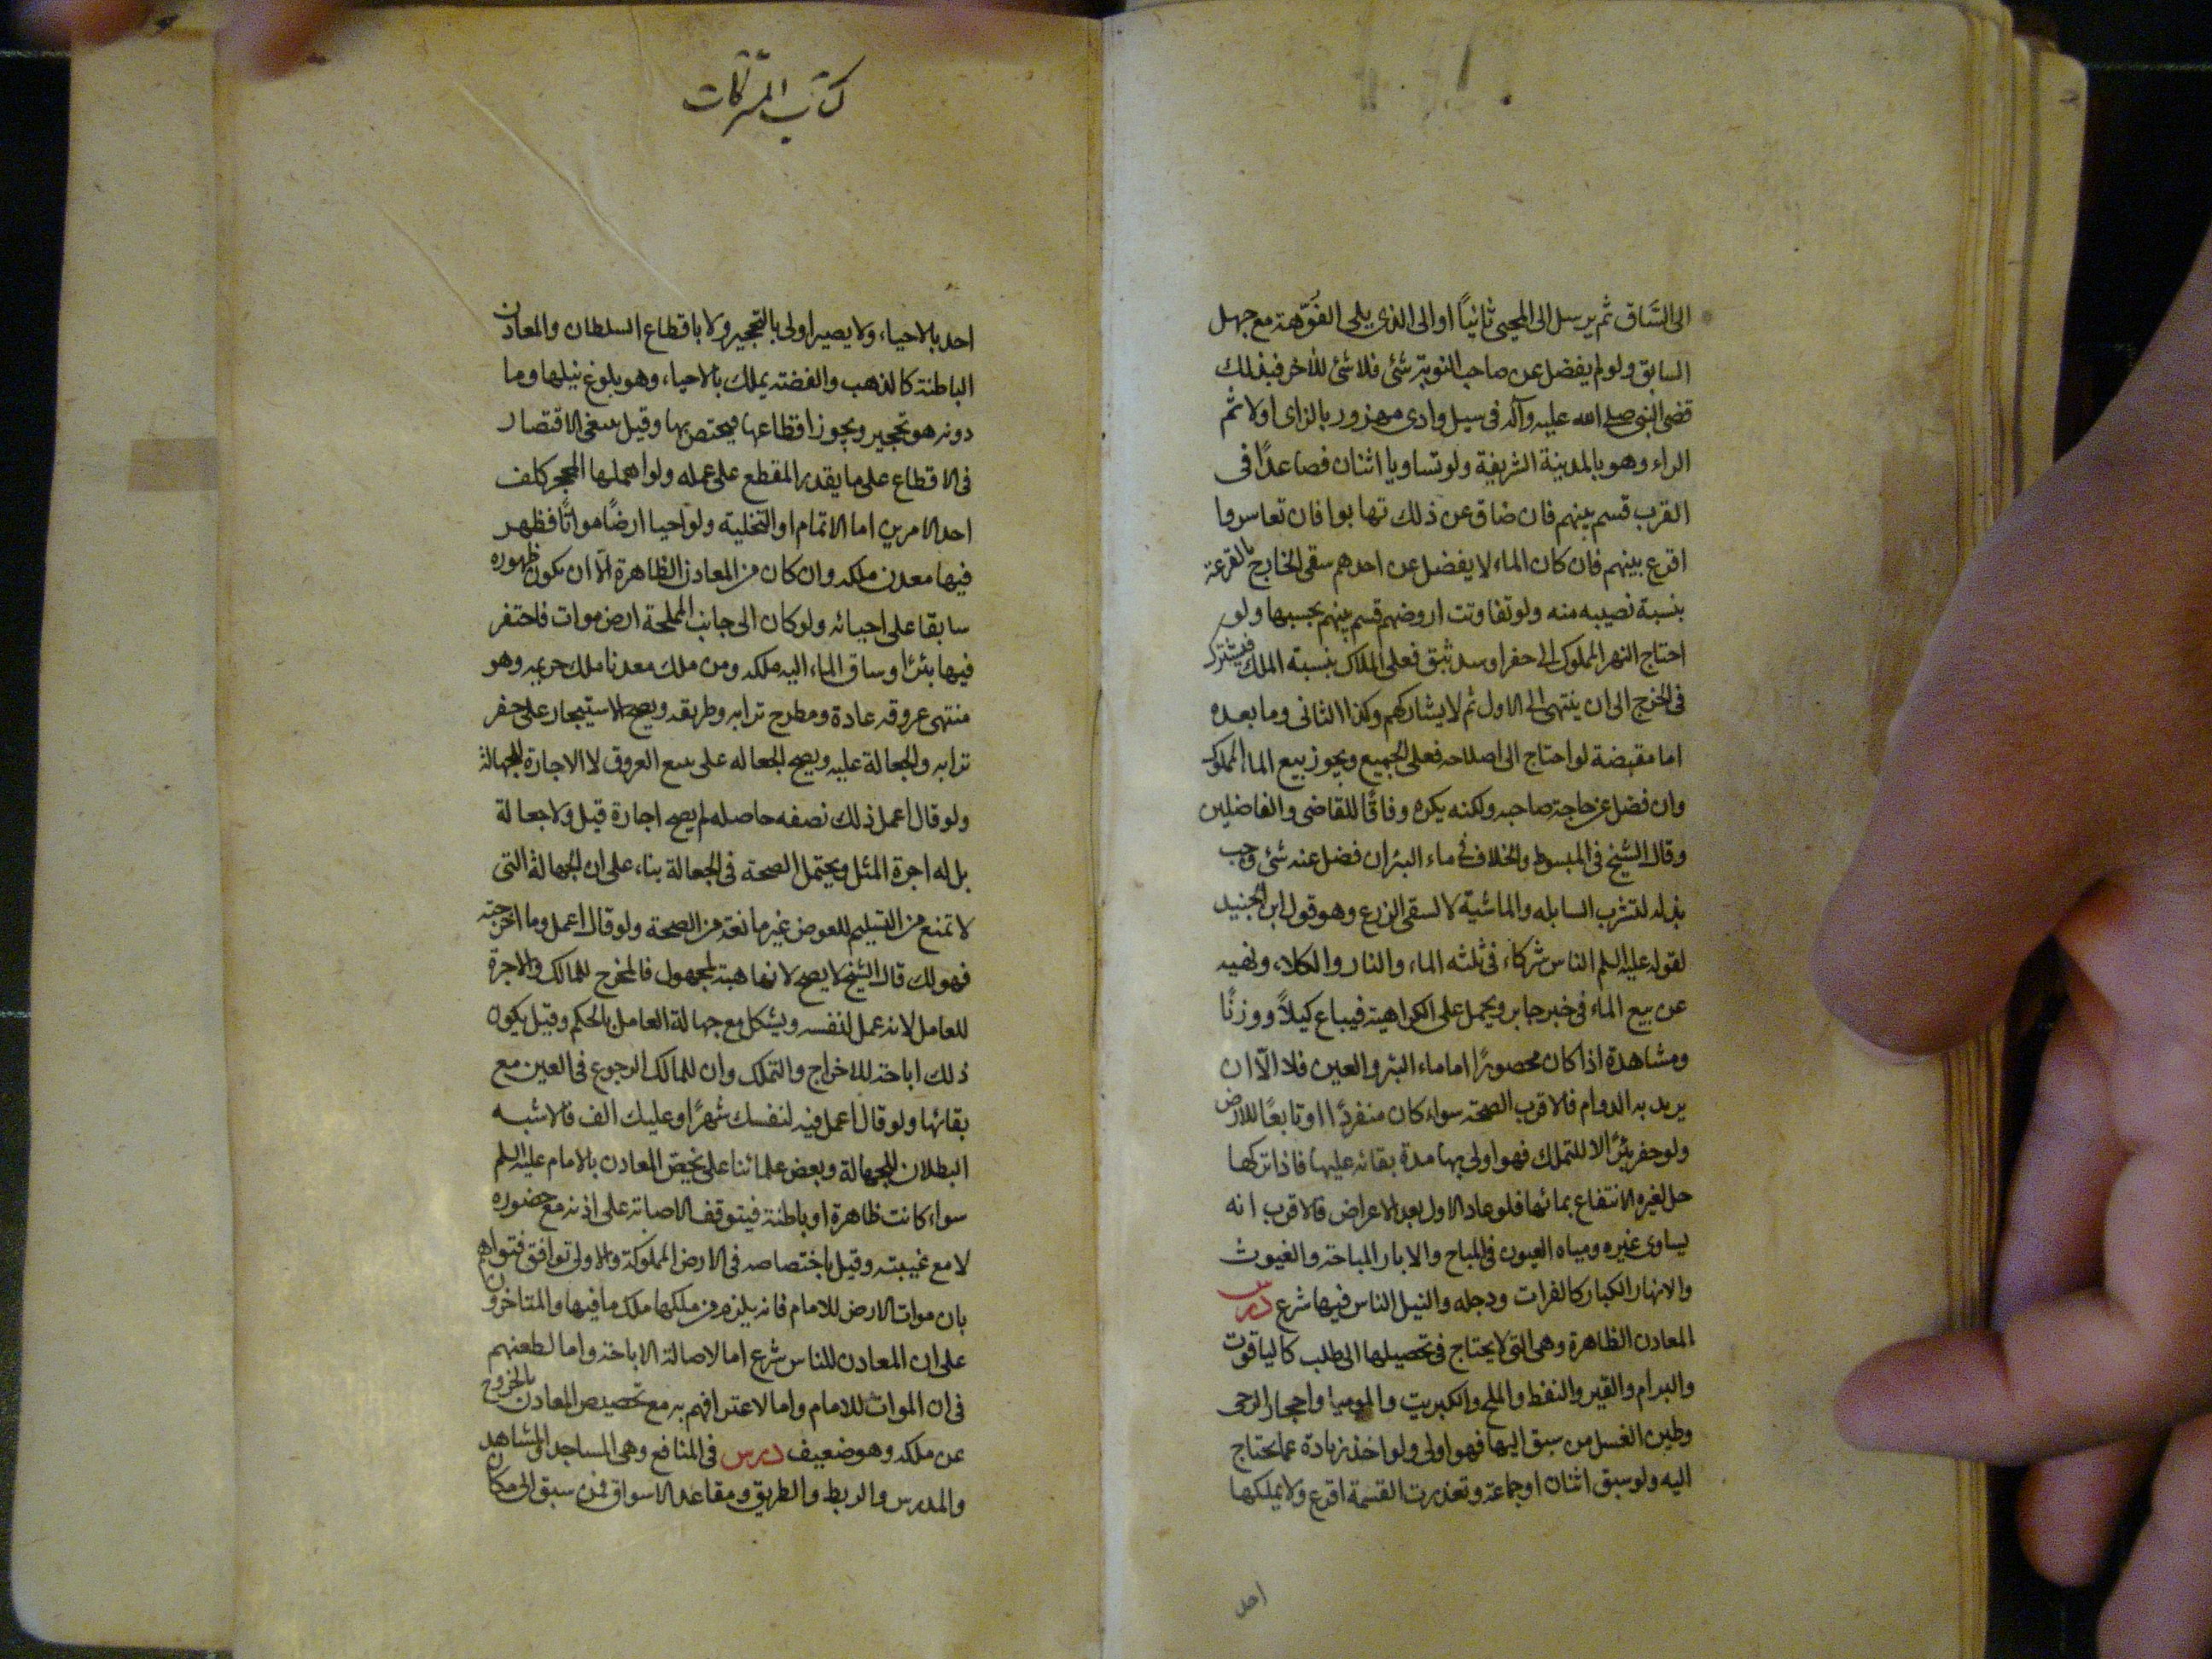 الى الساق ثم يرسل الى المحيى ثانيًا او الى الذى يلى الفُوَّهة مع جهل
السابق ولو لم يفضل عن صاحب النوبة شئ فلا شئ للاخر فبذلك
قضى النبى صلى الله عليه وآله فى سيل وادى مهزور بالزاى اولا ثم
الراء وهو بالمدينة الشريفة ولو تساويا اثنان فصاعدًا فى
القرب قسم بينهم فان ضاق عن ذلك تهابوا فان تعاسروا
اقرع بينهم فان كان الماء لا يفضل عن احدهم سقى الخارج بالقرعة
بنسبة نصيبه منه ولو تفاوتت اروضهم قسم بينهم بحسبها ولو
احتاج النهر المملوك الى حفر او سد ثبق فعلى الملاك بنسبة الملك فيشترك
فى الخرج الى ان ينتهى الى الاول ثم لا يشاركهم وكذا الثانى وما بعده
اما مقبضة لو احتاج الى اصلاحه فعلى الجميع ويجوز بيع الماء المملوك
وان فضل عن حاجة صاحبه ولكنه يكره وفاقًا للقاضى والفاضلين
وقال الشيخ فى المبسوط والخلاف فى ماء البئر ان فضل عنه شئ وجب
بذله لتشرب السابله والماشية لا لسقى الزرع وهو قول ابن الجنيد
لقوله عليه السلم الناس شركاء فى ثلثه الماء والنار والكلاء ونهيه
عن بيع الماء فى خبر جابر ويحمل على الكراهية فيباع كيلاً ووزنًا
ومشاهدة اذا كان محصورًا اما ماء البئر والعين فلا الّا ان
يريد به الدوام فالاقرب الصحة سواء كان منفردًا او تابعًا للارض
ولو حفر بئرًا لا للتملك فهو اولى بها مدة بقائه عليها فاذا تركها
حل لغيره الانتفاع بمائها فلو عاد الاول بعد الاعراض فالاقرب انه
يساوى غيره ومياه العيون فى المباح والابار المباحة والغيوث
والانهار الكبار كالفرات ودجله والنيل الناس فيها شرع درس
المعادن الظاهرة وهى التى لا يحتاج فى تحصيلها الى طلب كالياقوت
والبرام والقير والنفط والملح والكبريت والموميا واحجار الرحى
وطين الغسل من سبق اليها فهو اولى ولو اخذ زيادة عما يحتاج
اليه ولو سبق اثنان او جماعة وتعذرت القسمة اقرع ولا يملكها
احد
كتاب المشتركات
احد بالاحياء ولا يصير اولى بالتحجير ولا باقطاع السلطان والمعادن
الباطنة كالذهب والفضة يملك بالاحياء وهو بلوغ نيلها وما
دونه هو تحجير ويجوز اقطاعها فيختص بها وقيل ينبغى الاقتصار
فى الاقطاع على ما يقدر المقطع على عمله ولو اهملها المحجر كلف
احد الامرين اما الاتمام او التخلية ولو احيا ارضًا مواتًا فظهر
فيها معدن ملكه وان كان من المعادن الظاهرة الّا ان يكون ظهوره
سابقا على احيائه ولو كان الى جانب المملحة ارض موات فاحتفر
فيها بئرًا وساق الماء اليه ملكه ومن ملك معدنا ملك حريمه وهو
منتهى عروقه عادة ومطرح ترابه وطريقه ويصح الاستيجار على حفر
ترابه والجعالة عليه ويصح الجعاله على تتبع العروق لا الاجارة للجهالة
ولو قال اعمل ذلك نصفه حاصله لم يصح اجارة قيل ولا جعالة
بل له اجرة المثل ويحتمل الصحة فى الجعالة بناء على ان الجهالة التى
لا تمنع من التسليم للعوض غير مانعة من الصحة ولو قال اعمل وما اخرجته
فهو لك قال الشيخ لا يصح لانها هبة لمجهول فالمخرج للمالك والاجرة
للعامل لانه عمل لنفسه ويشكل مع جهالة العامل بالحكم وقيل يكون
ذلك اباحة للاخراج والتملك وان للمالك الرجوع فى العين مع
بقائها ولو قال اعمل فيه لنفسك شهرًا وعليك الف فالاشبه
البطلان للجهالة وبعض علمائنا على تخص المعادن بالامام عليه السلم
سواء كانت ظاهرة او باطنة فيتوقف الاصابة على اذنه مع حضوره
لا مع غيبته وقيل باختصاصه فى الارض المملوكة والاولى توافق فتواهم
بان موات الارض للامام فانه يلزم من ملكها ملك ما فيها والمتاخرون
على ان المعادن للناس شرع اما لاصالة الاباحة واما لطعنهم
فى ان الموات للامام واما لاعترافهم به مع تخصيص المعادن بالخروج
عن ملكه وهو ضعيف درس فى المنافع وهى المساجد والمشاهد
والمدرس والربط والطريق ومقاعد الاسواق فمن سبق الى مكان